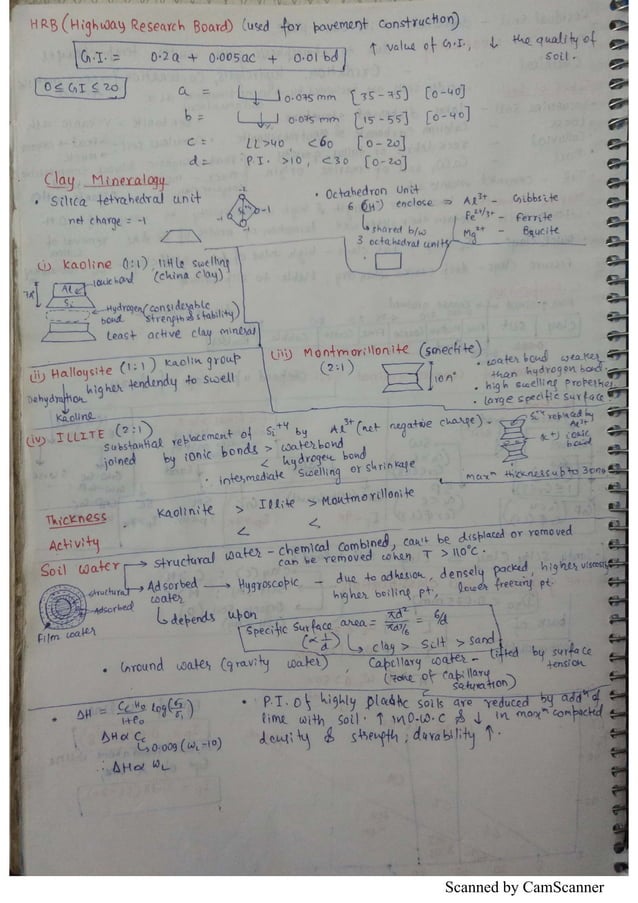 HRB (Highway Research Board) (used for pavement construction)
G.I. = 0.2a + 0.005ac + 0.01bd
↑ value of G.I., ↓ the quality of soil.
0 ≤ GI ≤ 20
a = 0.075mm [35-75] [0-40]
b = 0.075mm [15-55] [0-40]
c = LL>40, <60 [0-20]
d = P.I. >10, <30 [0-20]
Clay Mineralogy
• Silica tetrahedral unit
net charge = -1
-1
• Octahedron Unit
6 (OH⁻) enclose ⇒ Al³⁺ - Gibbsite
Fe²⁺/³⁺ - Ferrite
Mg²⁺ - Brucite
shared b/w
3 octahedral units
(i) Kaoline (1:1), little swelling
(china clay)
ionic bond
Al
Si
7A°
Hydrogen bond (considerable strength & stability)
Least active clay mineral
(ii) Halloysite (1:1) Kaolin group
higher tendendy to swell
Dehydration
Kaoline
(iii) Montmorillonite (smectite)
(2:1)
10A°
• water bond weaker
than hydrogen bond.
• high swelling properties
• large specific surface
(iv) ILLITE (2:1)
Substantial replacement of Si⁺⁴ by Al³⁺ (net negative charge).
joined by ionic bonds > waterbond
< hydrogen bond
• intermediate swelling or shrinkage
Si⁺⁴ replaced by Al³⁺
(K⁺) ionic bond
maxᵐ thickness up to 30nm
Thickness
Kaolinite > Illite > Montmorillonite
Activity
< <
Soil water
structural water - chemical combined, can't be displaced or removed
can be removed when T > 110°C.
Adsorbed water → Hygroscopic - due to adhesion, densely packed, higher viscosity
higher boiling pt., lower freezing pt.
structural
Adsorbed
Film water
depends upon
Specific surface area = πd²/πd³/6 = 6/d
(∝ 1/d) clay > silt > sand
• Ground water (gravity water), Capillary water - lifted by surface tension
(zone of capillary saturation)
• ΔH = Cc H₀/1+e₀ log(
ΔH ∝ Cc
0.009 (WL-10)
∴ ΔH ∝ WL
• P.I. of highly plastic soils are reduced by addⁿ of
lime with soil. ↑ in O.W.C & ↓ in maxᵐ compacted
density & strength; durability ↑.
Scanned by CamScanner